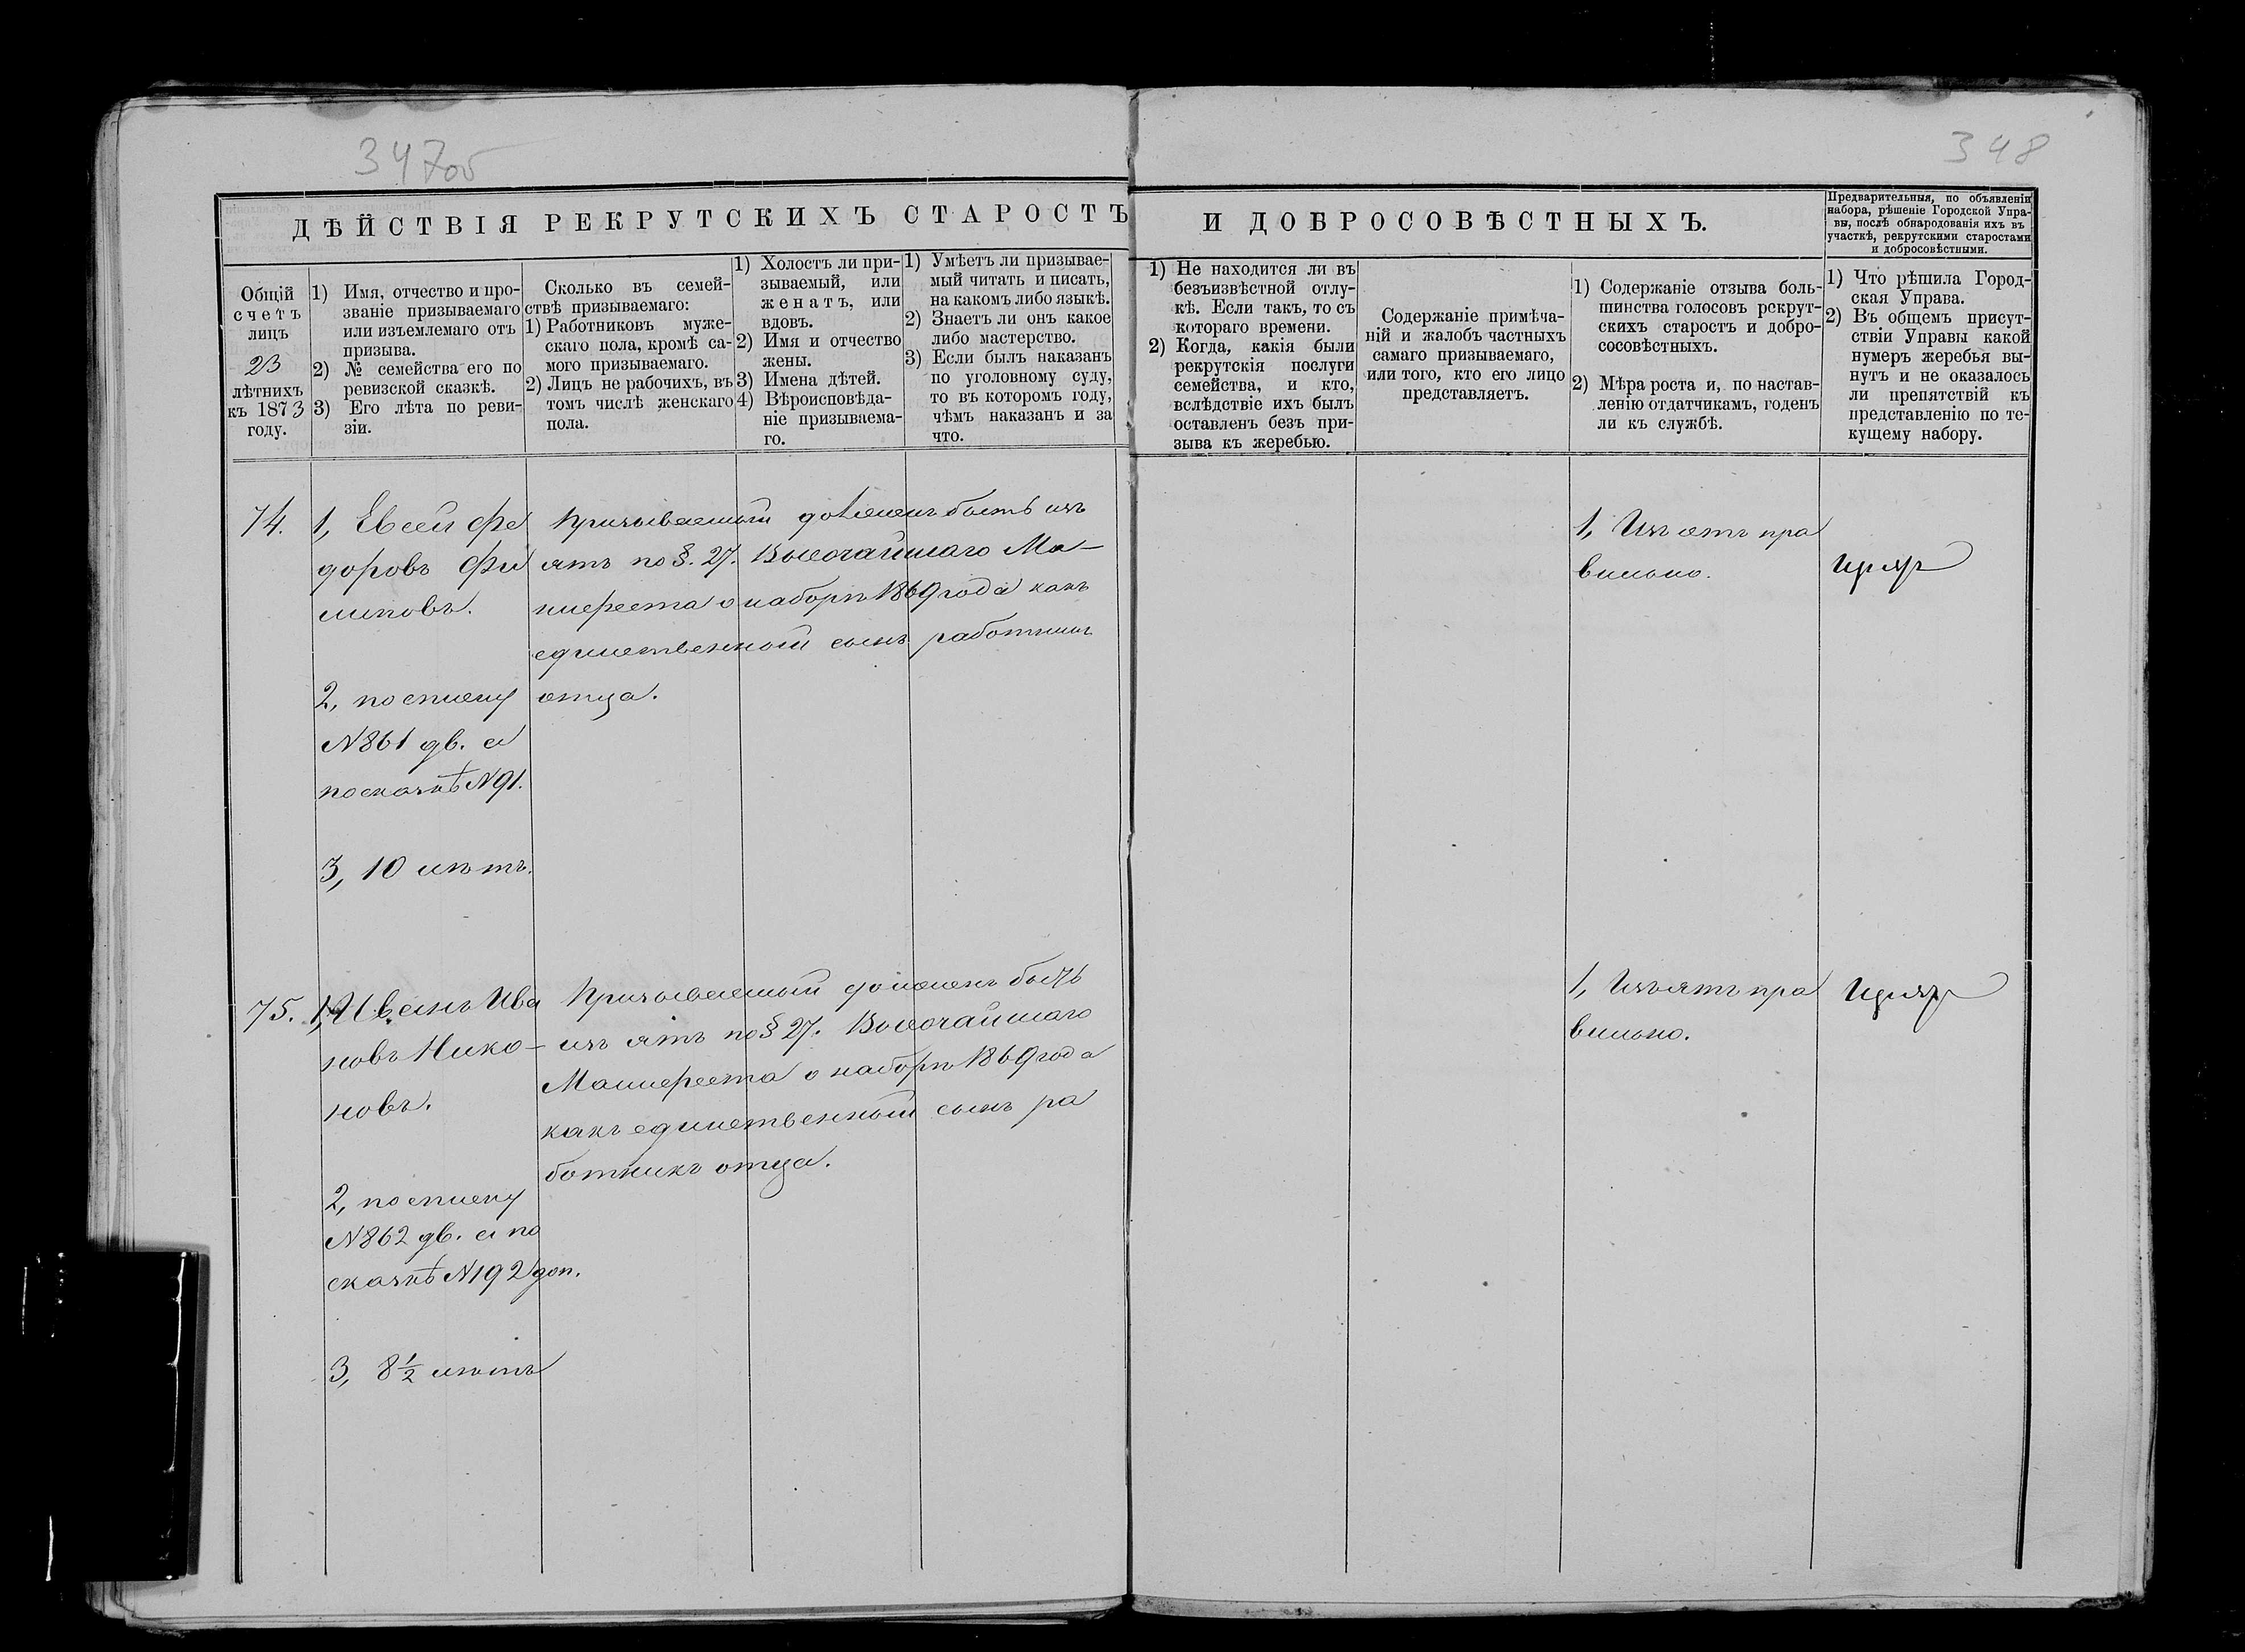 347об
348
ДѢЙСТВІЯ РЕКРУТСКИХЪ СТАРОСТЪ
И ДОБРОСОВѢСТНЫХЪ.
Предварительныя, по объявленіи
набора, рѣшеніе Городской Упра-
вы, послѣ обнародованія ихъ въ
участкѣ, рекрутскими старостами
и добросовѣстными.
Общій
счетъ
лицъ
23
лѣтнихъ
къ 1873
году.
1) Имя, отчество и про-
званіе призываемаго
или изъемлемаго отъ
призыва.
2) № семейства его по
ревизской сказкѣ.
3) Его лѣта по реви-
зіи.
Сколько въ семей-
ствѣ призываемаго:
1) Работниковъ муже-
скаго пола, кромѣ са-
мого призываемаго.
2) Лицъ не рабочихъ, въ
томъ числѣ женскаго
пола.
1) Холостъ ли при-
зываемый, или
женатъ, или
вдовъ.
2) Имя и отчество
жены.
3) Имена дѣтей.
4) Вѣроисповѣда-
ніе призываема-
го.
1) Умѣетъ ли призывае-
мый читать и писать,
на какомъ либо языкѣ.
2) Знаетъ ли онъ какое
либо мастерство.
3) Если былъ наказанъ
по уголовному суду,
то въ которомъ году,
чѣмъ наказанъ и за
что.
1) Не находится ли въ
безъизвѣстной отлу-
кѣ. Если такъ, то съ
котораго времени.
2) Когда, какія были
рекрутскія послуги
семейства, и кто,
вслѣдствіе ихъ былъ
оставленъ безъ при-
зыва къ жеребью.
Содержаніе примѣча-
ній и жалобъ частныхъ
самаго призываемаго,
или того, кто его лицо
представляетъ.
1) Содержаніе отзыва боль-
шинства голосовъ рекрут-
скихъ старостъ и добро-
сосовѣстныхъ.
2) Мѣра роста и, по настав-
ленію отдатчикамъ, годенъ
ли къ службѣ.
1) Что рѣшила Город-
ская Управа.
2) Въ общемъ присут-
ствіи Управы какой
нумеръ жеребья вы-
нутъ и не оказалось
ли препятствій къ
представленію по те-
кущему набору.
74.
1, Евсей Фе
доровъ Фи
липовъ.
2, по списку
N 861 дв. а
по сказкѣ N 91.
3, 10 лѣтъ.
Призываемый долженъ быть изъ
ятъ по §. 27. Высочайшаго Ма-
нифеста о наборѣ 1869 года какъ
единственный сынъ работникъ
отца.
1, Изъятъ пра
вильно.
75.
1, Иванъ Ива
новъ Нико-
новъ.
2, по списку
N 862 дв. а по
сказкѣ N 192 доп.
3, 8 1/2 лѣтъ
Призываемый долженъ быть
изъ ятъ по § 27. Высочайшаго
Манифеста о наборѣ 1869 года
какъ единственный сынъ ра
ботникъ отца.
1, Изъятъ пра
вильно.